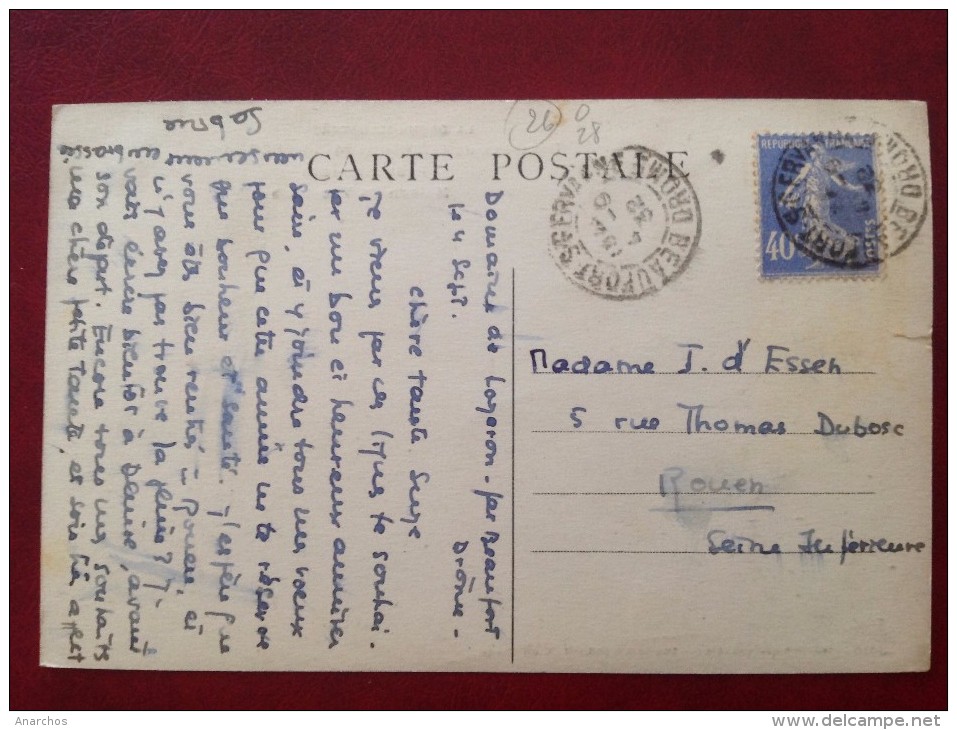 26
0
28
CARTE POSTALE
BEAUFORT S GERVANNE
DROME
RÉPUBLIQUE FRANÇAISE
40
Domaine de Lozeron - par Beaufort
le 4 Sept. Drôme -
chère tante Suzye
je viens par ces lignes te souhai-
ter un bon et heureux anniver
saire, et y joindre tous mes voeux
pour que cette année ne te réserve
que bonheur et santé. J'espère que
vous êtes bien rentrés à Rouen, et
n'avez pas trouvé la pluie? Je
vais écrire bientôt à Denise, avant
son départ. Encore tous mes souhaits
ma chère petite Tante, et sois bien affect
ueusement
embrassée
Madame J. d'Essen
5 rue Thomas Dubosc
Rouen
Seine Inférieure
Anarchos
www.delcampe.net